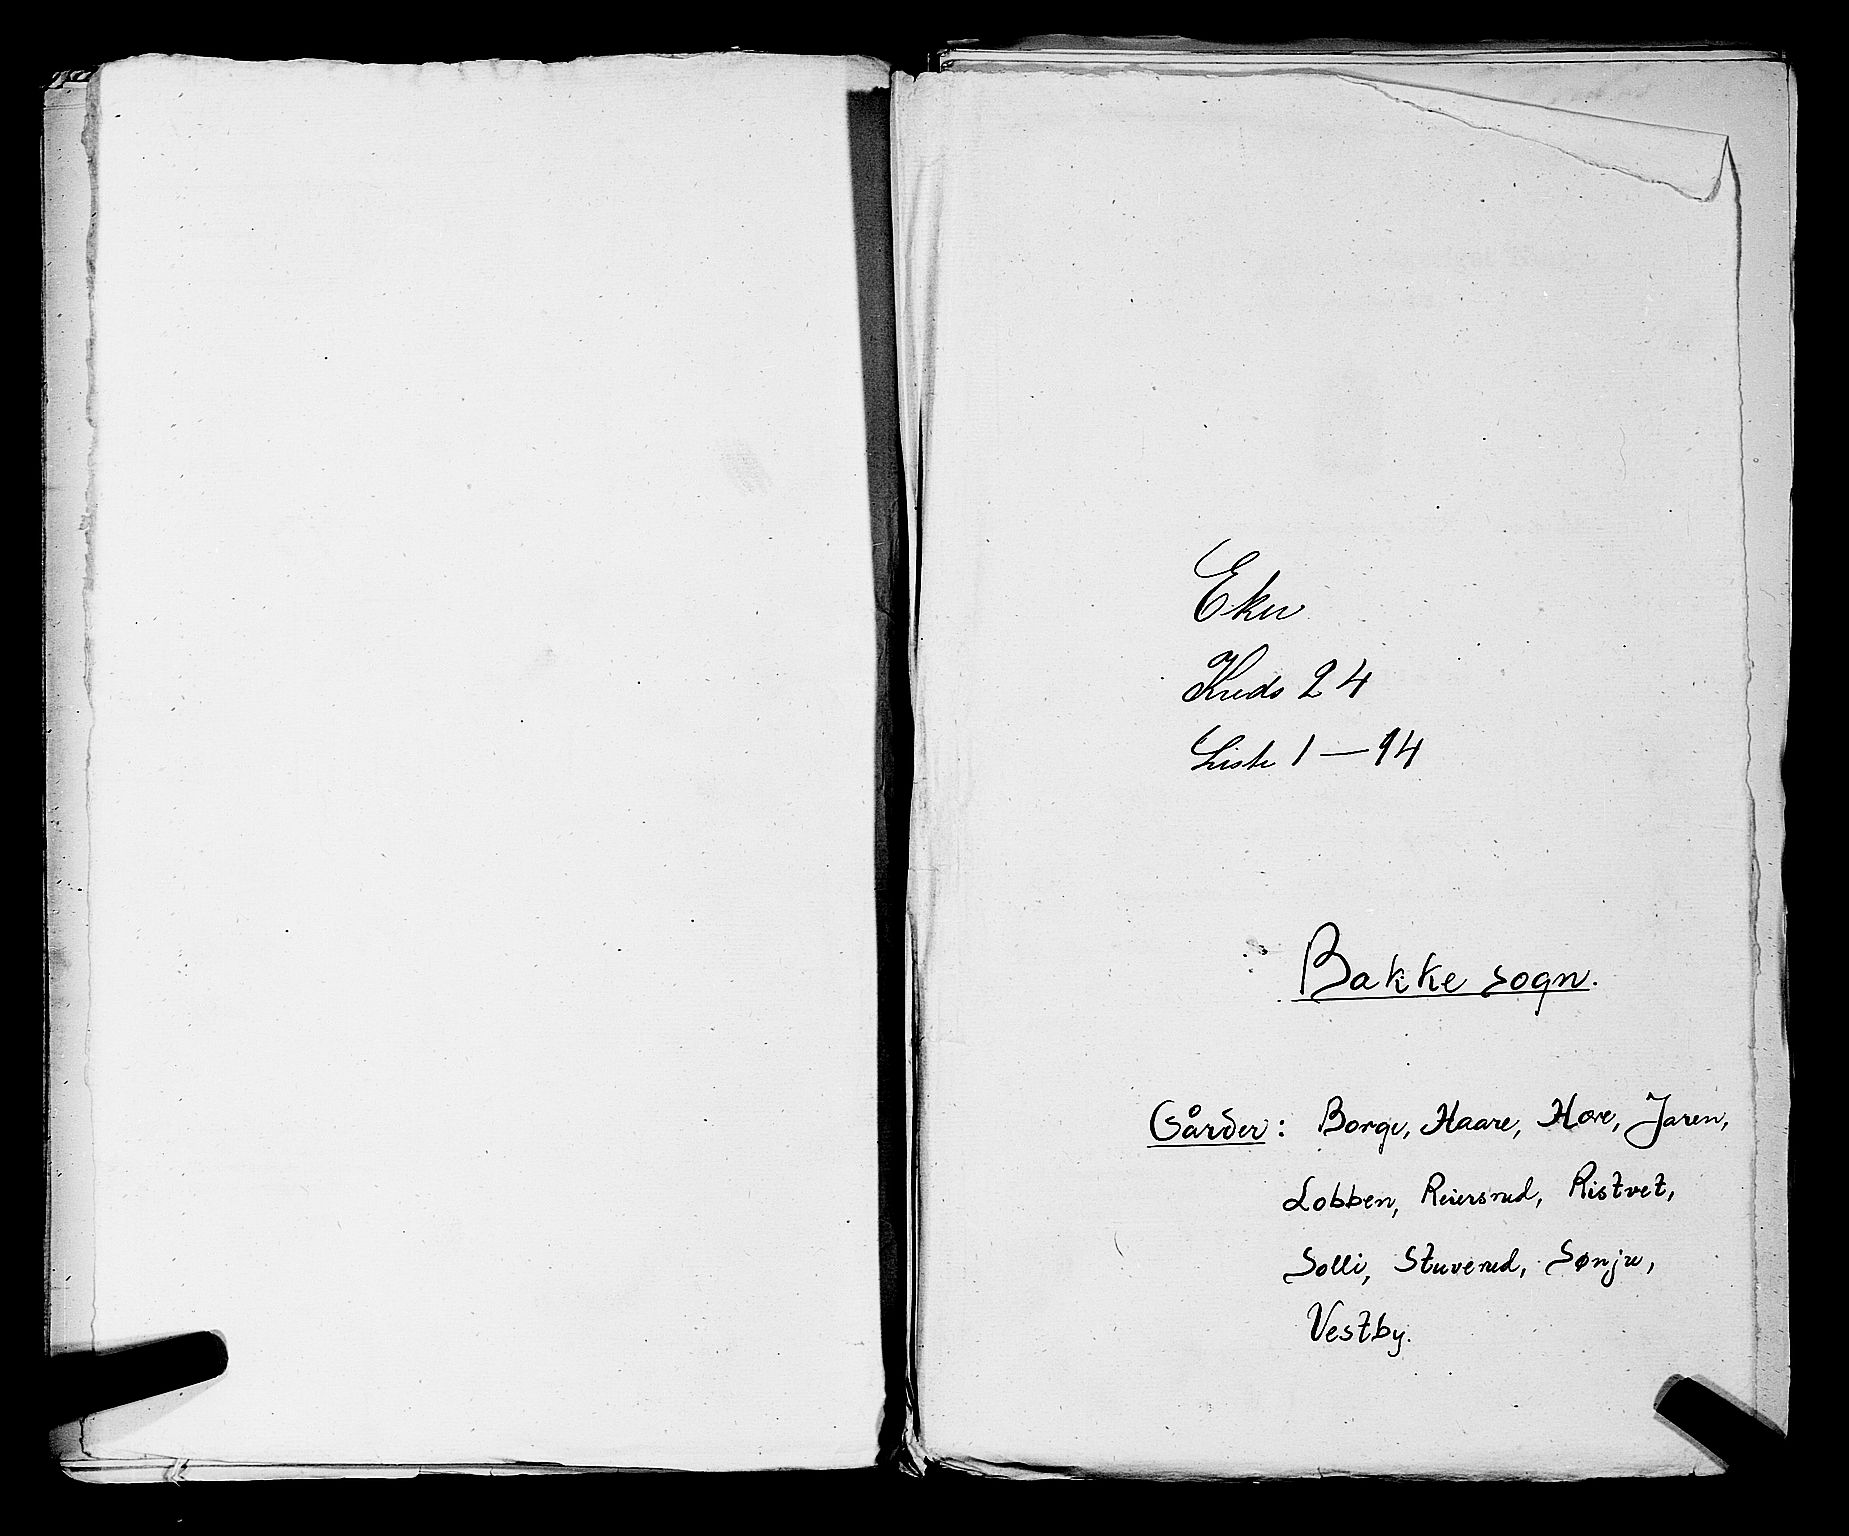 Eker
Kreds 24
Liste 1 — 14
Bakke sogn.
Gårder: Borge, Haare, Hove, Jaren,
Lobben, Reiersrud, Ristvet,
Solli, Stuverud, Sønju,
Vestby.